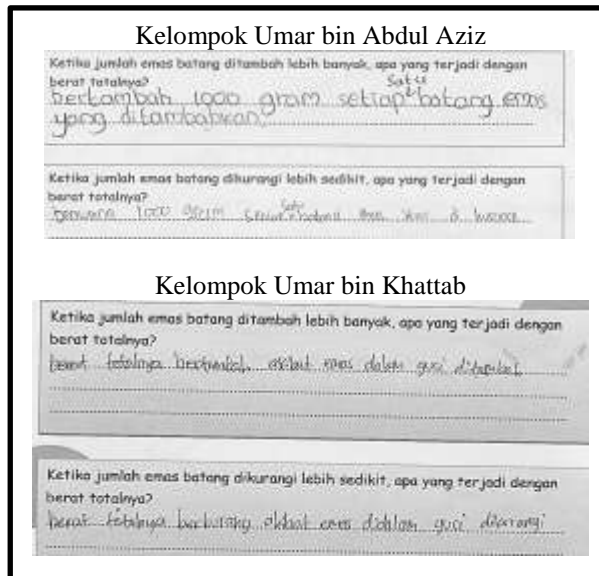 Kelompok Umar bin Abdul Aziz
Ketika jumlah emas batang ditambah lebih banyak, apa yang terjadi dengan
berat totalnya?
satu
bertambah 1000 gram setiap batang emas
yang ditambahkan
Ketika jumlah emas batang dikurangi lebih sedikit, apa yang terjadi dengan
berat totalnya?
1000 gram satu batang emas
Kelompok Umar bin Khattab
Ketika jumlah emas batang ditambah lebih banyak, apa yang terjadi dengan
berat totalnya?
berat totalnya bertambah akibat emas dalam guci ditambah
Ketika jumlah emas batang dikurangi lebih sedikit, apa yang terjadi dengan
berat totalnya?
berat totalnya berkurang akibat emas didalam guci dikurangi